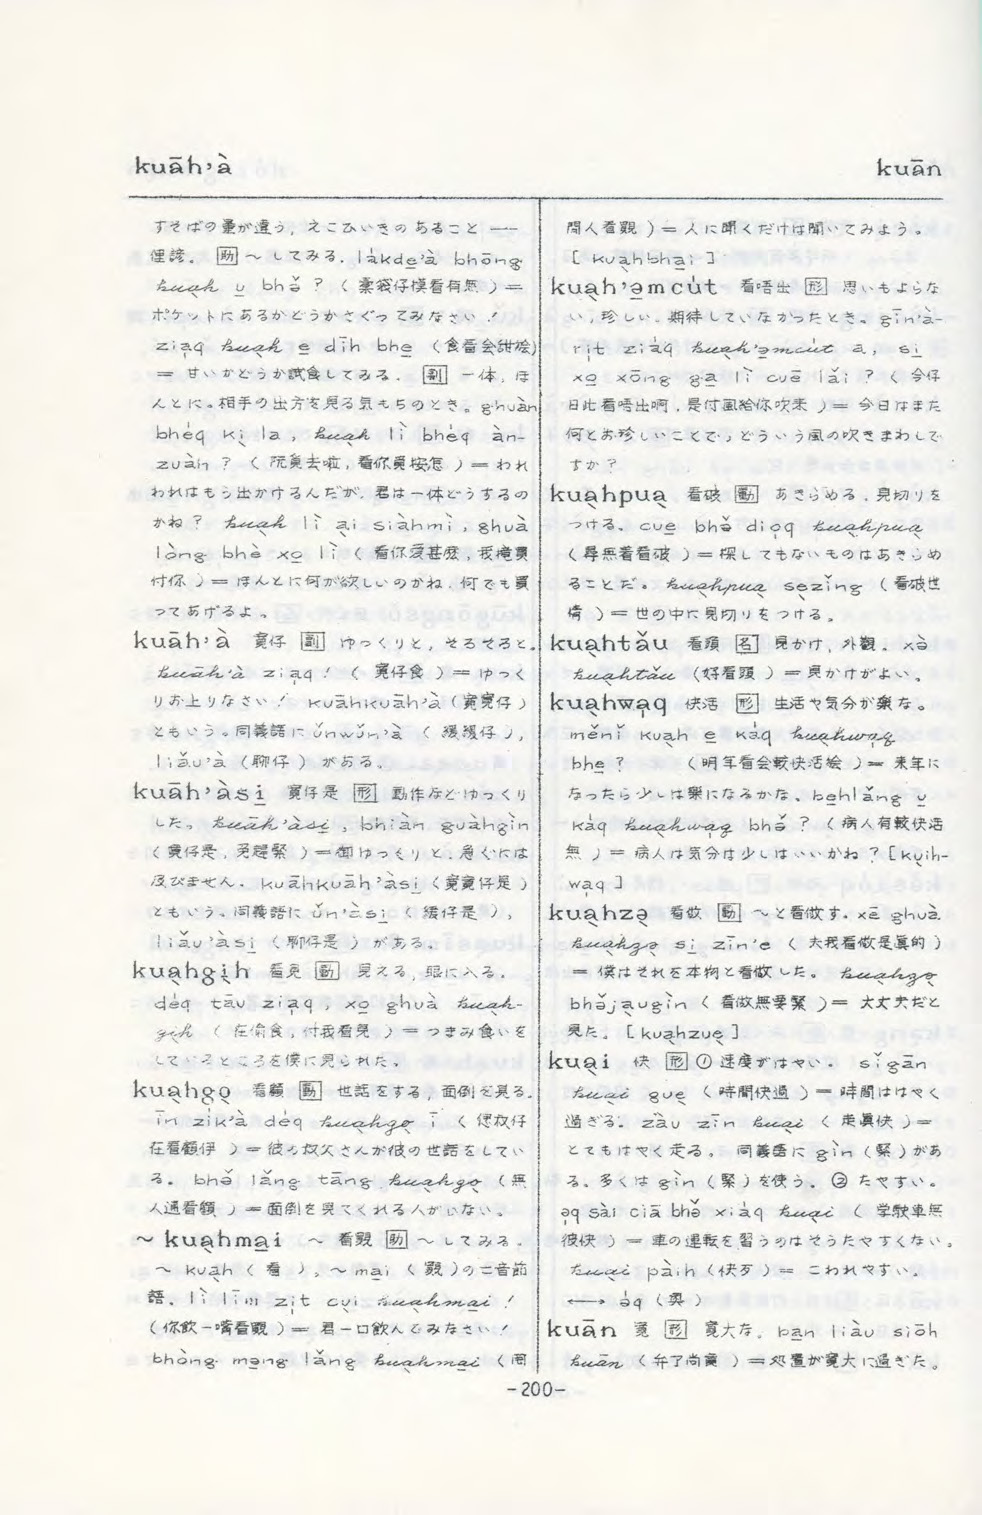 kuāh'à
kuān
すそばの量が違う, えこひいきのあること ——
俚諺. 助 〜してみる. lákde'à bhōng
kuąh u bhə̆ ? ( 橐袋仔摸看有無 ) =
ポケットにあるかどうかさぐってみなさい !
ziaq kuąh e dīh bhe ( 食看会甜𣍐)
= 甘いかどうか試食してみる. 副 一体, ほ
んとに。相手の出方を見る気もちのとき。ghuàn
bhéq ki la , kuąh lì bhéq àn-
zuàn ? ( 阮覓去啦, 看你覓按怎 ) = われ
われはもう出かけるんだが, 君は一体どうするの
かね ? kuąh lì ại siàhmì , ghuà
lòng bhè xo lì ( 看你愛甚麽, 我攏買
付你 ) = ほんとに何が欲しいのかね. 何でも買
ってあげるよ。
kuāh'à 寛仔 副 ゆっくりと, そろそろと.
kuāh'à ziaq ! ( 寛仔食 ) = ゆっく
りお上りなさい ! kuāhkuāh'à ( 寛寛仔 )
ともいう。同義語に ŭnwŭn'à ( 緩緩仔 ),
liău'à ( 聊仔 ) がある.
kuāh'àsi 寛仔是 形 動作などゆっくり
した。kuāh'àsi , bhiàn guàhgìn
( 寛仔是, 免趕緊 ) = 御ゆっくりと, 急ぐには
及びません. kuāhkuāh'àsi ( 寛寛仔是 )
ともいう. 同義語に ŭn'àsi ( 緩仔是 ),
liău'àsi ( 聊仔是 ) がある.
kuąhgịh 看見 動 見える, 眼に入る.
déq tāu ziaq , xo ghuà kuąh-
gịh ( 在偷食, 付我看見 ) = つまみ食いを
しているところを僕に見られた.
kuąhgọ 看顧 動 世話をする, 面倒を見る.
īn zik'à déq kuąhgọ ī ( 𪜶叔仔
在看顧伊 ) = 彼の叔父さんが彼の世話をしてい
る. bhə̆ lăng tāng kuąhgọ ( 無
人通看顧 ) = 面倒を見てくれる人がいない.
〜 kuąhmại 〜 看覓 助 〜してみる.
〜 kuąh ( 看 ), 〜 mại ( 覓 )の二音節
語. lì līm zit cụi kuąhmại !
( 你飲一嘴看覓 ) = 君一口飲んでみなさい !
bhòng mạng lăng kuąhmại ( 罔
問人看覓 ) = 人に聞くだけは聞いてみよう。
[ kuąhbhại ]
kuąh'ə̣mcút 看唔出 形 思いもよらな
い, 珍しい. 期待していなかったとき。gīn'à-
rịt ziàq kuąh'ə̣mcút a , si
xo xōng gạ lì cuē lăi ? ( 今仔
日此看唔出啊, 是付風給你吹来 ) = 今日はまた
何とお珍しいことで, どういう風の吹きまわしで
すか ?
kuąhpuạ 看破 動 あきらめる, 見切りを
つける. cue bhə̆ dioq kuąhpuạ
( 尋無着看破 ) = 探してもないものはあきらめ
ることだ。kuąhpuạ sẹzĭng ( 看破世
情 ) = 世の中に見切りをつける。
kuąhtău 看頭 名 見かけ, 外観. xə̀
kuąhtău (好看頭 ) = 見かけがよい。
kuąhwạq 快活 形 生活や気分が楽な。
mĕnĭ kuąh e káq kuąhwạq
bhe ? ( 明年看会較快活𣍐 ) = 来年に
なったら少しは楽になるかな. behlăng u
káq kuąhwạq bhə̆ ? ( 病人有較快活
無 ) = 病人は気分は少しはいいかね ? [kụih-
wạq ]
kuąhzə̣ 看做 動 〜と看做す. xē ghuà
kuąhzə̣ si zīn'e ( 夫我看做是真的 )
= 僕はそれを本物と看做した。 kuąhzə̣
bhə̆jạugìn ( 看做無要緊 ) = 大丈夫だと
見た. [ kuąhzuẹ ]
kuại 快 形 ① 速度がはやい. sĭgān
kuại guẹ ( 時間快過 ) = 時間ははやく
過ぎる. zàu zīn kuại ( 走真快 ) =
とてもはやく走る。 同義語に gìn ( 緊 ) があ
る. 多くは gìn ( 緊 ) を使う. ② たやすい。
ə̣q sài ciā bhə̆ xiáq kuại ( 学駛車無
彼快 ) = 車の運転を習うのはそうたやすくない。
kuại pàih ( 快歹 ) = こわれやすい.
⟷ ə́q ( 奥 )
kuān 寛 形 寛大な。bạn liàu siōh
kuān ( 弁了尚寛 ) = 処置が寛大に過ぎた。
-200-